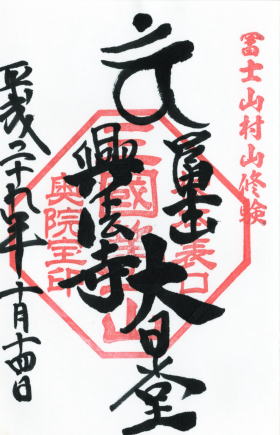 冨士山村山修験
表口
三國第一山
奥院
富士山
興法寺
大日堂
平成二十九年十月十四日